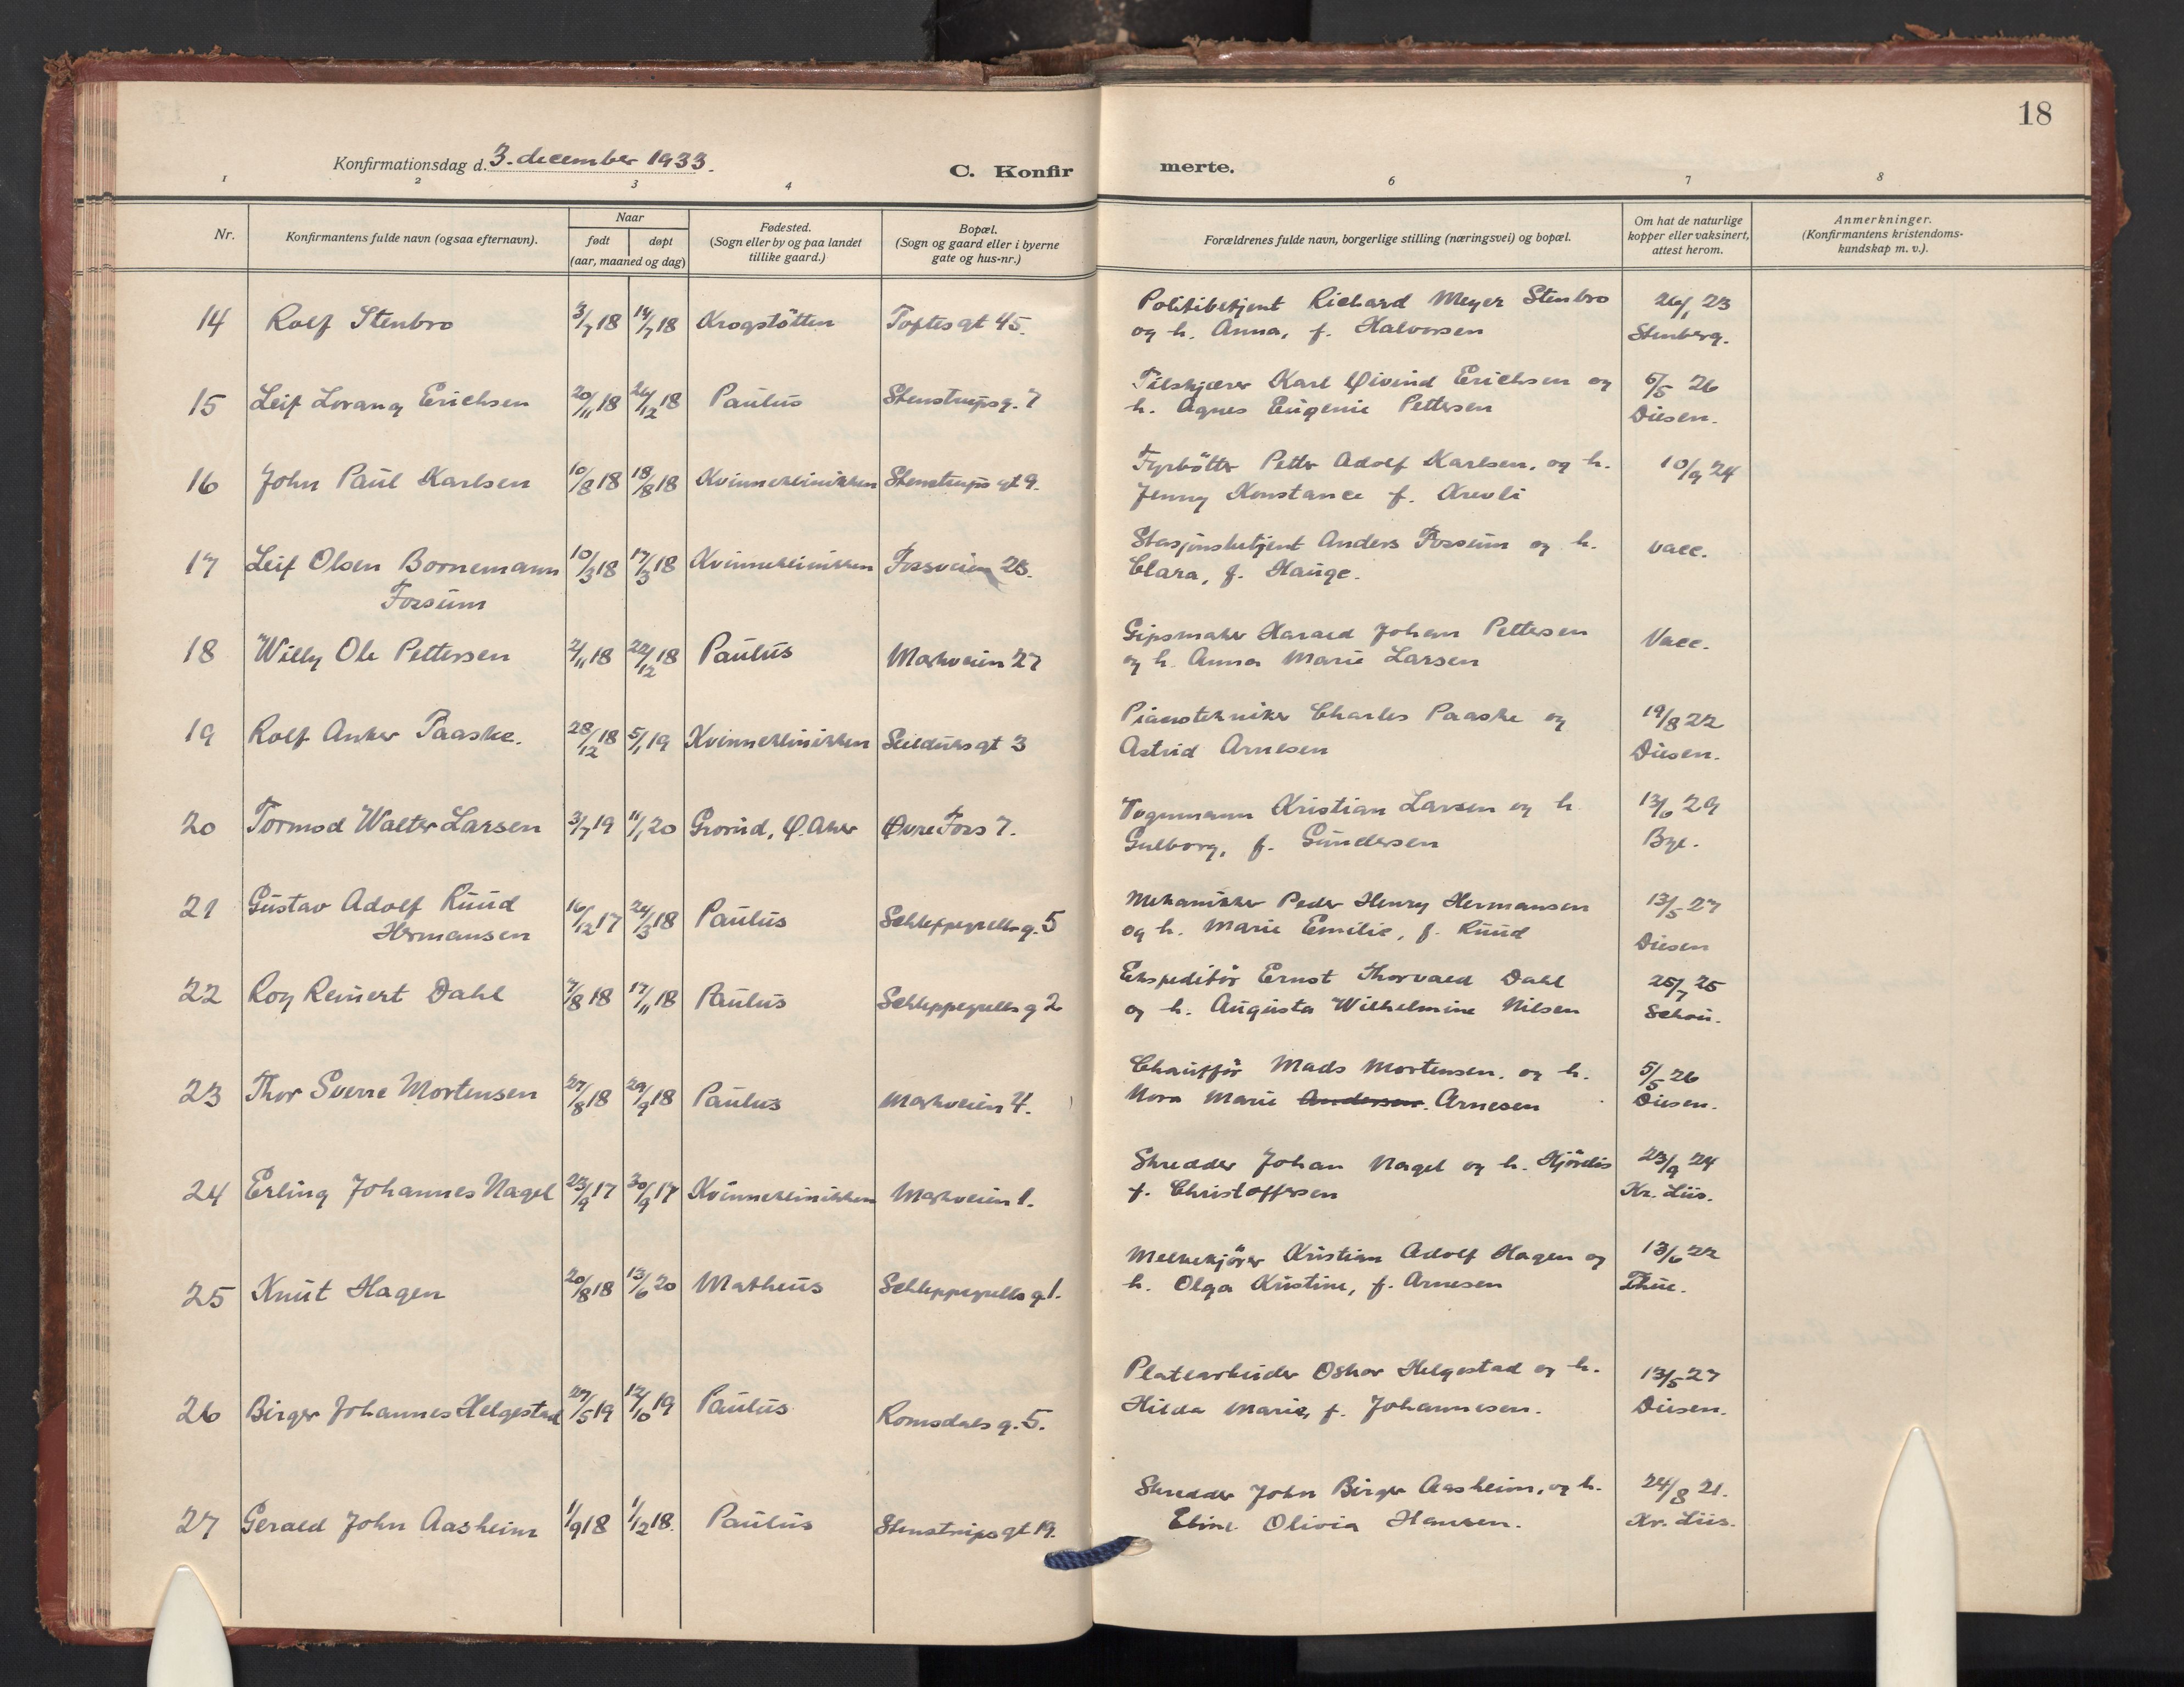 18
Konfirmationsdag d. 3. december 1933.
C. Konfir merte.
1 2 3 4 6 7 8
Nr.
Konfirmantens fulde navn (ogsaa efternavn).
Naar
født døpt
(aar, maaned og dag)
Fødested.
(Sogn eller by og paa landet
tillike gaard.)
Bopæl.
(Sogn og gaard eller i byerne
gate og hus-nr.)
Forældrenes fulde navn, borgerlige stilling (næringsvei) og bopæl.
Om hat de naturlige
kopper eller vaksinert,
attest herom.
Anmerkninger.
(Konfirmantens kristendoms-
kundskap m. v.).
14 Rolf Stenbro 3/7 18 14/7 18 Krogstøtten Toftesgt 45.
Politibetjent Richard Meyer Stenbro 26/1 23
og h. Anna, f. Halvorsen Stenberg.
15 Leif Lorang Erichsen 20/11 18 26/12 18 Paulus Stenstrupsg. 7
Tilskjærer Karl Øivind Erichsen og 5/5 26
h. Agnes Eugenie Pettersen Diesen.
16 John Paul Karlsen 10/8 18 18/8 18 Kvinneklinikken Stenstrups gt 9.
Fyrbøtter Petter Adolf Karlsen, og h. 10/9 24
Jenny Konstance f. Krevli
17 Leif Olsen Bornemann 10/3 18 17/3 18 Kvinneklinikken Fossveien 23.
Fossum
Stasjonsbetjent Anders Fossum og h. vacc.
Clara, f. Hauge.
18 Willy Ole Pettersen 2/11 18 22/12 18 Paulus Markveien 27
Gipsmaker Harald Johan Pettersen Vacc.
og h. Anna Marie Larsen
19 Rolf Anker Paaske. 28/12 18 5/1 19 Kvinneklinikken Seilduksgt 3
Pianotekniker Charles Paaske og 19/8 22
Astrid Arnesen Diesen.
20 Tormod Walter Larsen 3/7 19 11/1 20 Grorud, Ø. Aker Øvre Foss 7.
Vognmann Kristian Larsen og h 13/6 29
Gulborg, f. Gundersen Bye.
21 Gustav Adolf Ruud 16/12 17 24/3 18 Paulus Schleppegrellsg. 5
Hermansen
Mekanikker Peder Henry Hermansen 13/5 27
og h. Marie Emilie, f. Ruud Diesen
22 Roy Reinert Dahl 7/8 18 17/11 18 Paulus Schleppegrells g 2
Ekspeditør Ernst Thorvald Dahl 25/7 25
og h. Augusta Wilhelmine Nilsen Schou.
23 Thor Sverre Mortensen 27/8 18 29/9 18 Paulus Markveien 4.
Chauffør Mads Mortensen. og h. 5/5 26
Nora Marie Andersen. Arnesen Diesen.
24 Erling Johannes Nagel 23/9 17 30/9 17 Kvinneklinikken Markveien 1.
Skredder Johan Nagel og h. Hjørdis 23/9 24
f. Christoffersen Kr. Liis.
25 Knut Hagen 20/8 18 13/6 20 Matheus Schleppegrells g. 1.
Melkekjører Kristian Adolf Hagen og 13/6 22
h. Olga Kristine, f. Arnesen Thue.
26 Birger Johannes Helgestad 27/5 19 12/10 19 Paulus Romsdals g. 5.
Platearbeider Oskar Helgestad og h. 13/5 27
Hilda Marie, f. Johannesen. Diesen.
27 Gerald John Aasheim 1/9 18 1/12 18. Paulus Stenstrupsgt 19.
Skredder John Birger Aasheim, og h. 24/8 21.
Eline Olivia Hansen. Kr. Liis.